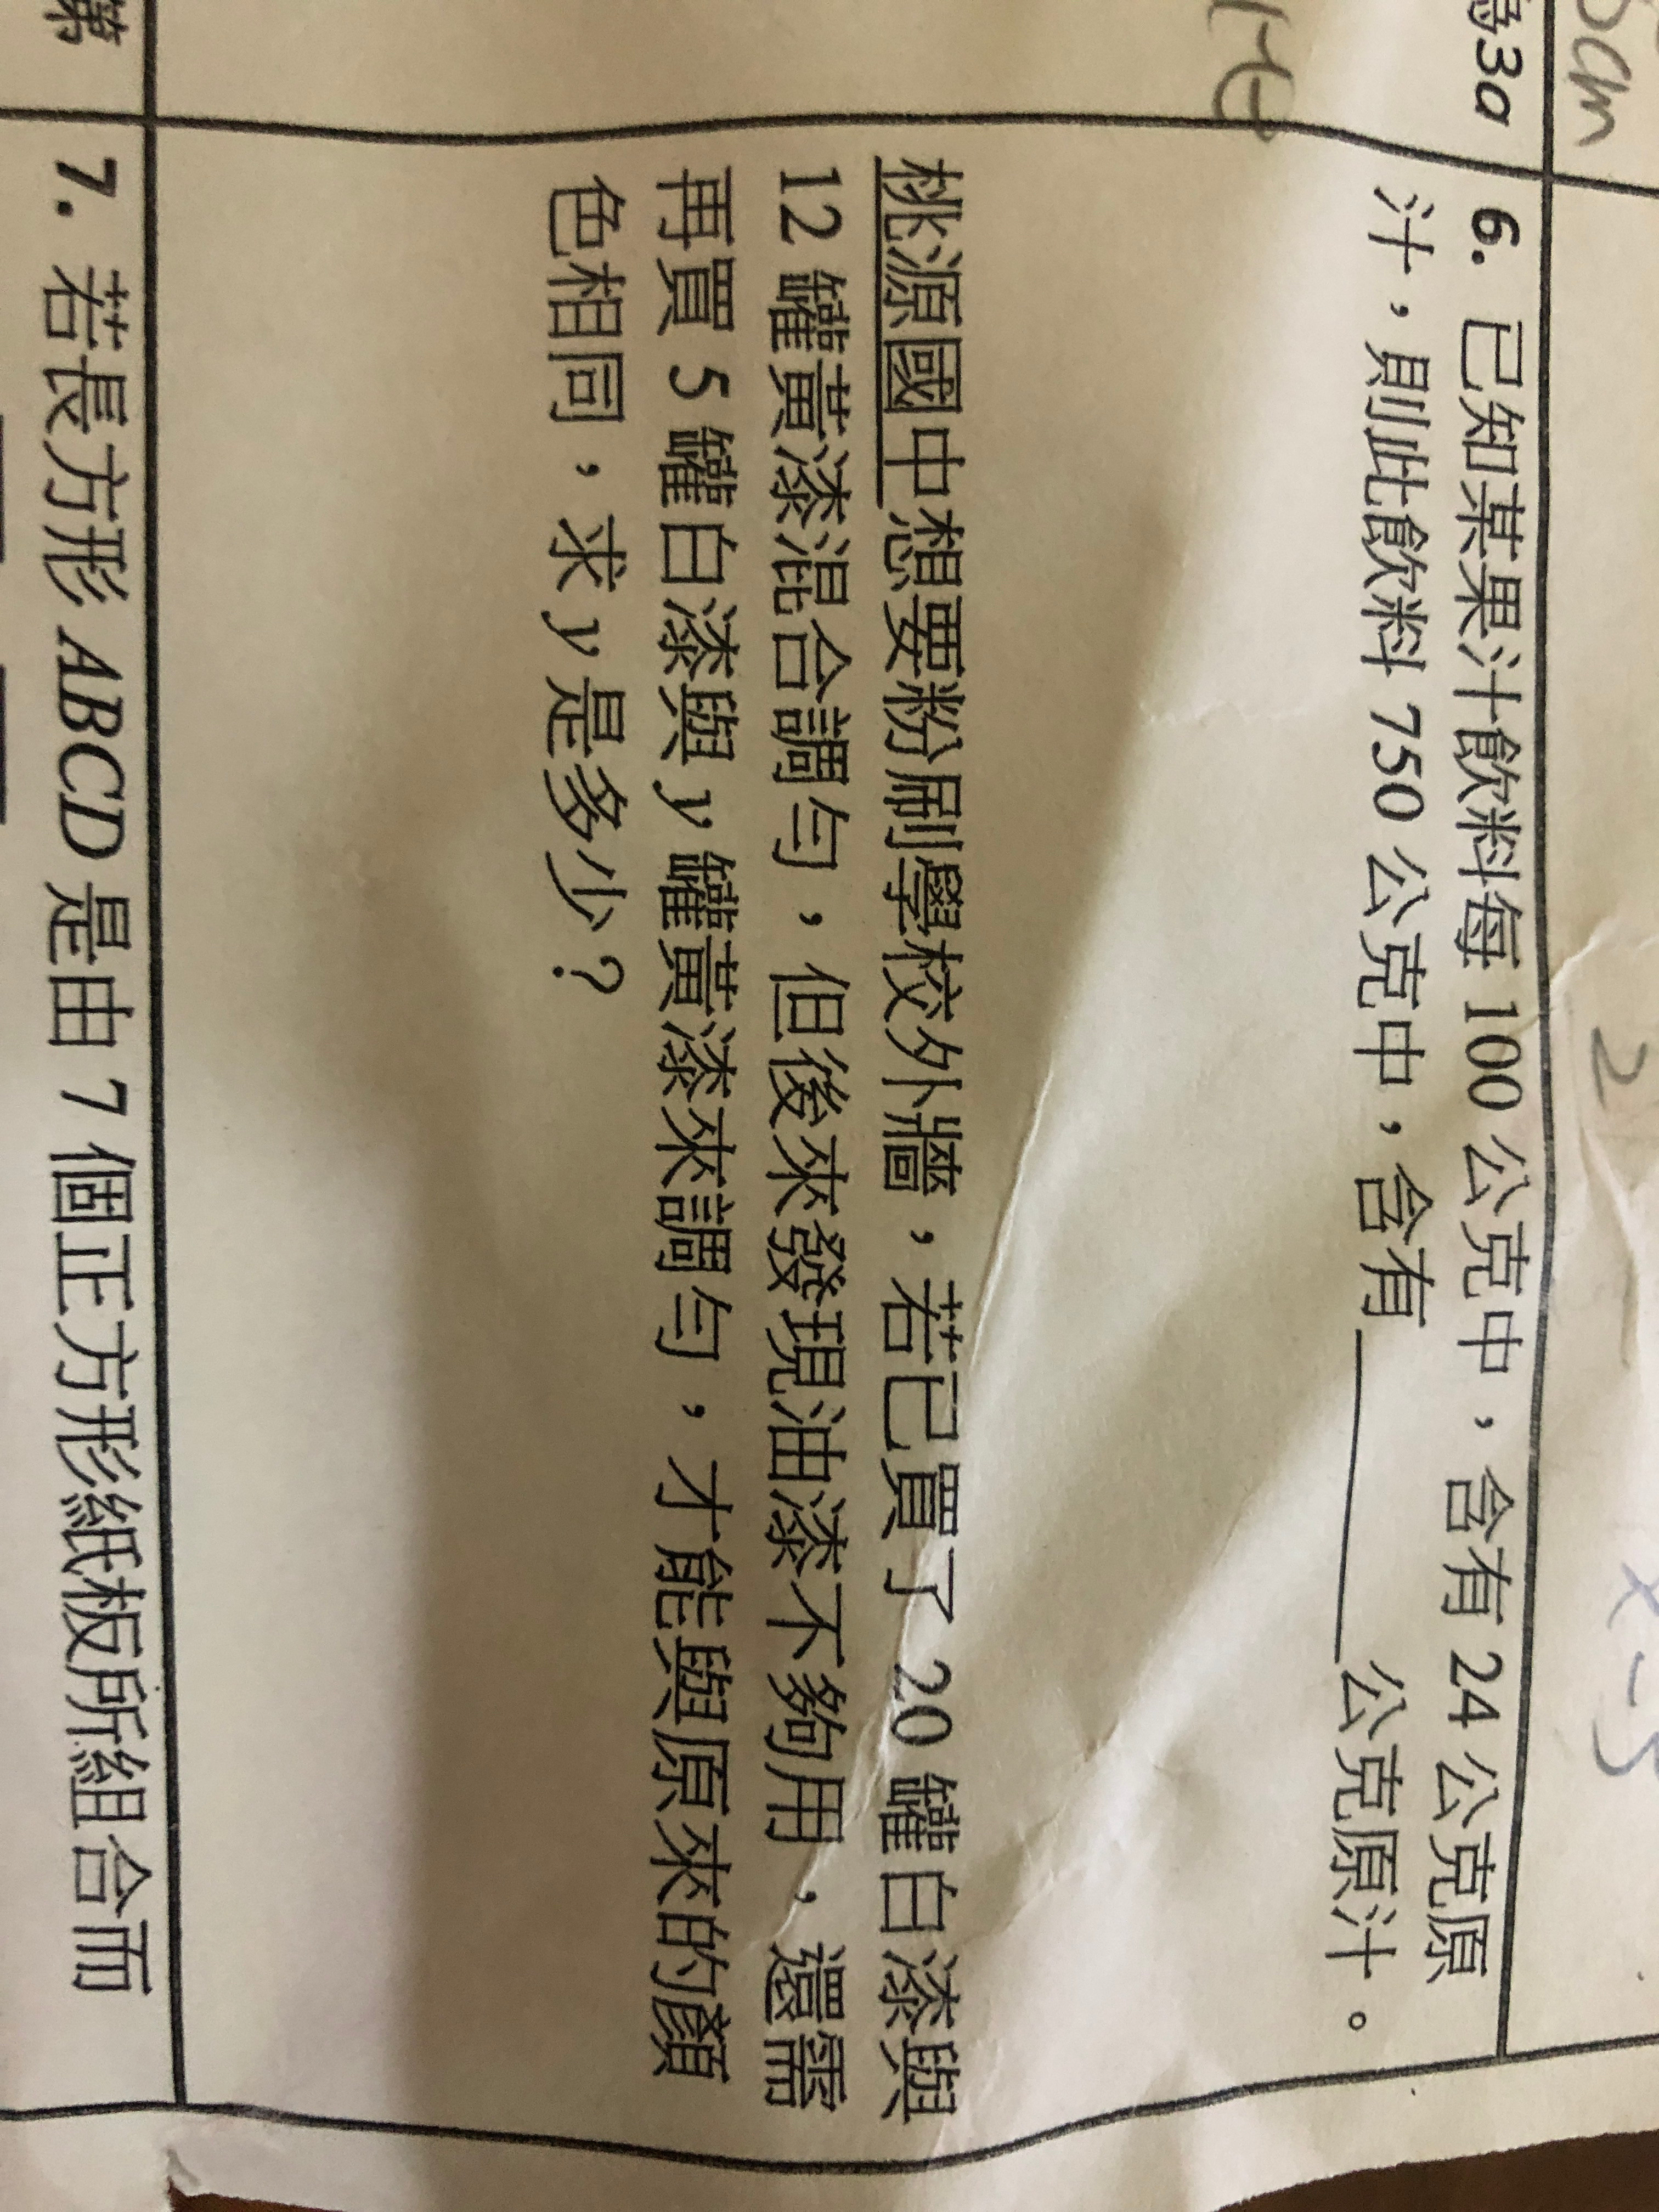 6. 已知某果汁飲料每 100 公克中，含有 24 公克原
汁，則此飲料 750 公克中，含有______公克原汁。
桃源國中想要粉刷學校外牆，若已買了 20 罐白漆與
12 罐黃漆混合調勻，但後來發現油漆不夠用，還需
再買 5 罐白漆與 y 罐黃漆來調勻，才能與原來的顏
色相同，求 y 是多少？
7. 若長方形 ABCD 是由 7 個正方形紙板所組合而
3a
cm
2
x-5
第